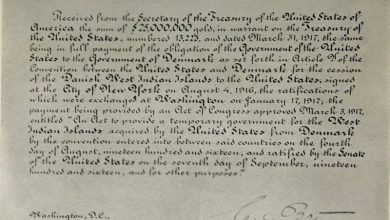 Received from the Secretary of the Treasury of the United States of
America the sum of $25,000,000 gold, in warrant on the Treasury of
the United States, numbered and dated March 31, 1917, the same
being in full payment of the obligation of the Government of the United
States to the Government of Denmark as set forth in Article of the
Convention between the United States and Denmark for the cession
of the Danish West Indian Islands to the United States, signed
at the City of New York on August 4, 1916, the ratifications of
which were exchanged at Washington on January 17, 1917; the
payment being provided by an Act of Congress approved March 3, 1917,
entitled "An Act to provide a temporary government for the West
Indian Islands acquired by the United States from Denmark
by the convention entered into between said countries on the fourth
day of August, nineteen hundred and sixteen and ratified by the Senate
of the United States on the seventh day of September, nineteen
hundred and sixteen, and for other purposes."
Washington, D.C.,